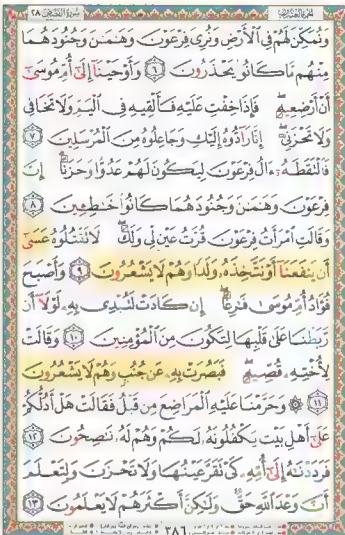 الجزء العشرون سورة القصص ٢٨
وَنُمَكِّنَ لَهُمْ فِى ٱلْأَرْضِ وَنُرِىَ فِرْعَوْنَ وَهَٰمَٰنَ وَجُنُودَهُمَا
مِنْهُم مَّا كَانُوا۟ يَحْذَرُونَ ٦ وَأَوْحَيْنَآ إِلَىٰٓ أُمِّ مُوسَىٰٓ
أَنْ أَرْضِعِيهِ ۖ فَإِذَا خِفْتِ عَلَيْهِ فَأَلْقِيهِ فِى ٱلْيَمِّ وَلَا تَخَافِى
وَلَا تَحْزَنِىٓ ۖ إِنَّا رَآدُّوهُ إِلَيْكِ وَجَاعِلُوهُ مِنَ ٱلْمُرْسَلِينَ ٧
فَٱلْتَقَطَهُۥٓ ءَالُ فِرْعَوْنَ لِيَكُونَ لَهُمْ عَدُوًّا وَحَزَنًا ۗ إِنَّ
فِرْعَوْنَ وَهَٰمَٰنَ وَجُنُودَهُمَا كَانُوا۟ خَٰطِـِٔينَ ٨
وَقَالَتِ ٱمْرَأَتُ فِرْعَوْنَ قُرَّتُ عَيْنٍ لِّى وَلَكَ ۖ لَا تَقْتُلُوهُ عَسَىٰٓ
أَن يَنفَعَنَآ أَوْ نَتَّخِذَهُۥ وَلَدًا وَهُمْ لَا يَشْعُرُونَ ٩ وَأَصْبَحَ
فُؤَادُ أُمِّ مُوسَىٰ فَٰرِغًا ۖ إِن كَادَتْ لَتُبْدِى بِهِۦ لَوْلَآ أَن
رَّبَطْنَا عَلَىٰ قَلْبِهَا لِتَكُونَ مِنَ ٱلْمُؤْمِنِينَ ١٠ وَقَالَتْ
لِأُخْتِهِۦ قُصِّيهِ ۖ فَبَصُرَتْ بِهِۦ عَن جُنُبٍ وَهُمْ لَا يَشْعُرُونَ
١١ ۞ وَحَرَّمْنَا عَلَيْهِ ٱلْمَرَاضِعَ مِن قَبْلُ فَقَالَتْ هَلْ أَدُلُّكُمْ
عَلَىٰٓ أَهْلِ بَيْتٍ يَكْفُلُونَهُۥ لَكُمْ وَهُمْ لَهُۥ نَٰصِحُونَ ١٢
فَرَدَدْنَٰهُ إِلَىٰٓ أُمِّهِۦ كَىْ تَقَرَّ عَيْنُهَا وَلَا تَحْزَنَ وَلِتَعْلَمَ
أَنَّ وَعْدَ ٱللَّهِ حَقٌّ وَلَٰكِنَّ أَكْثَرَهُمْ لَا يَعْلَمُونَ ١٣
٣٨٦